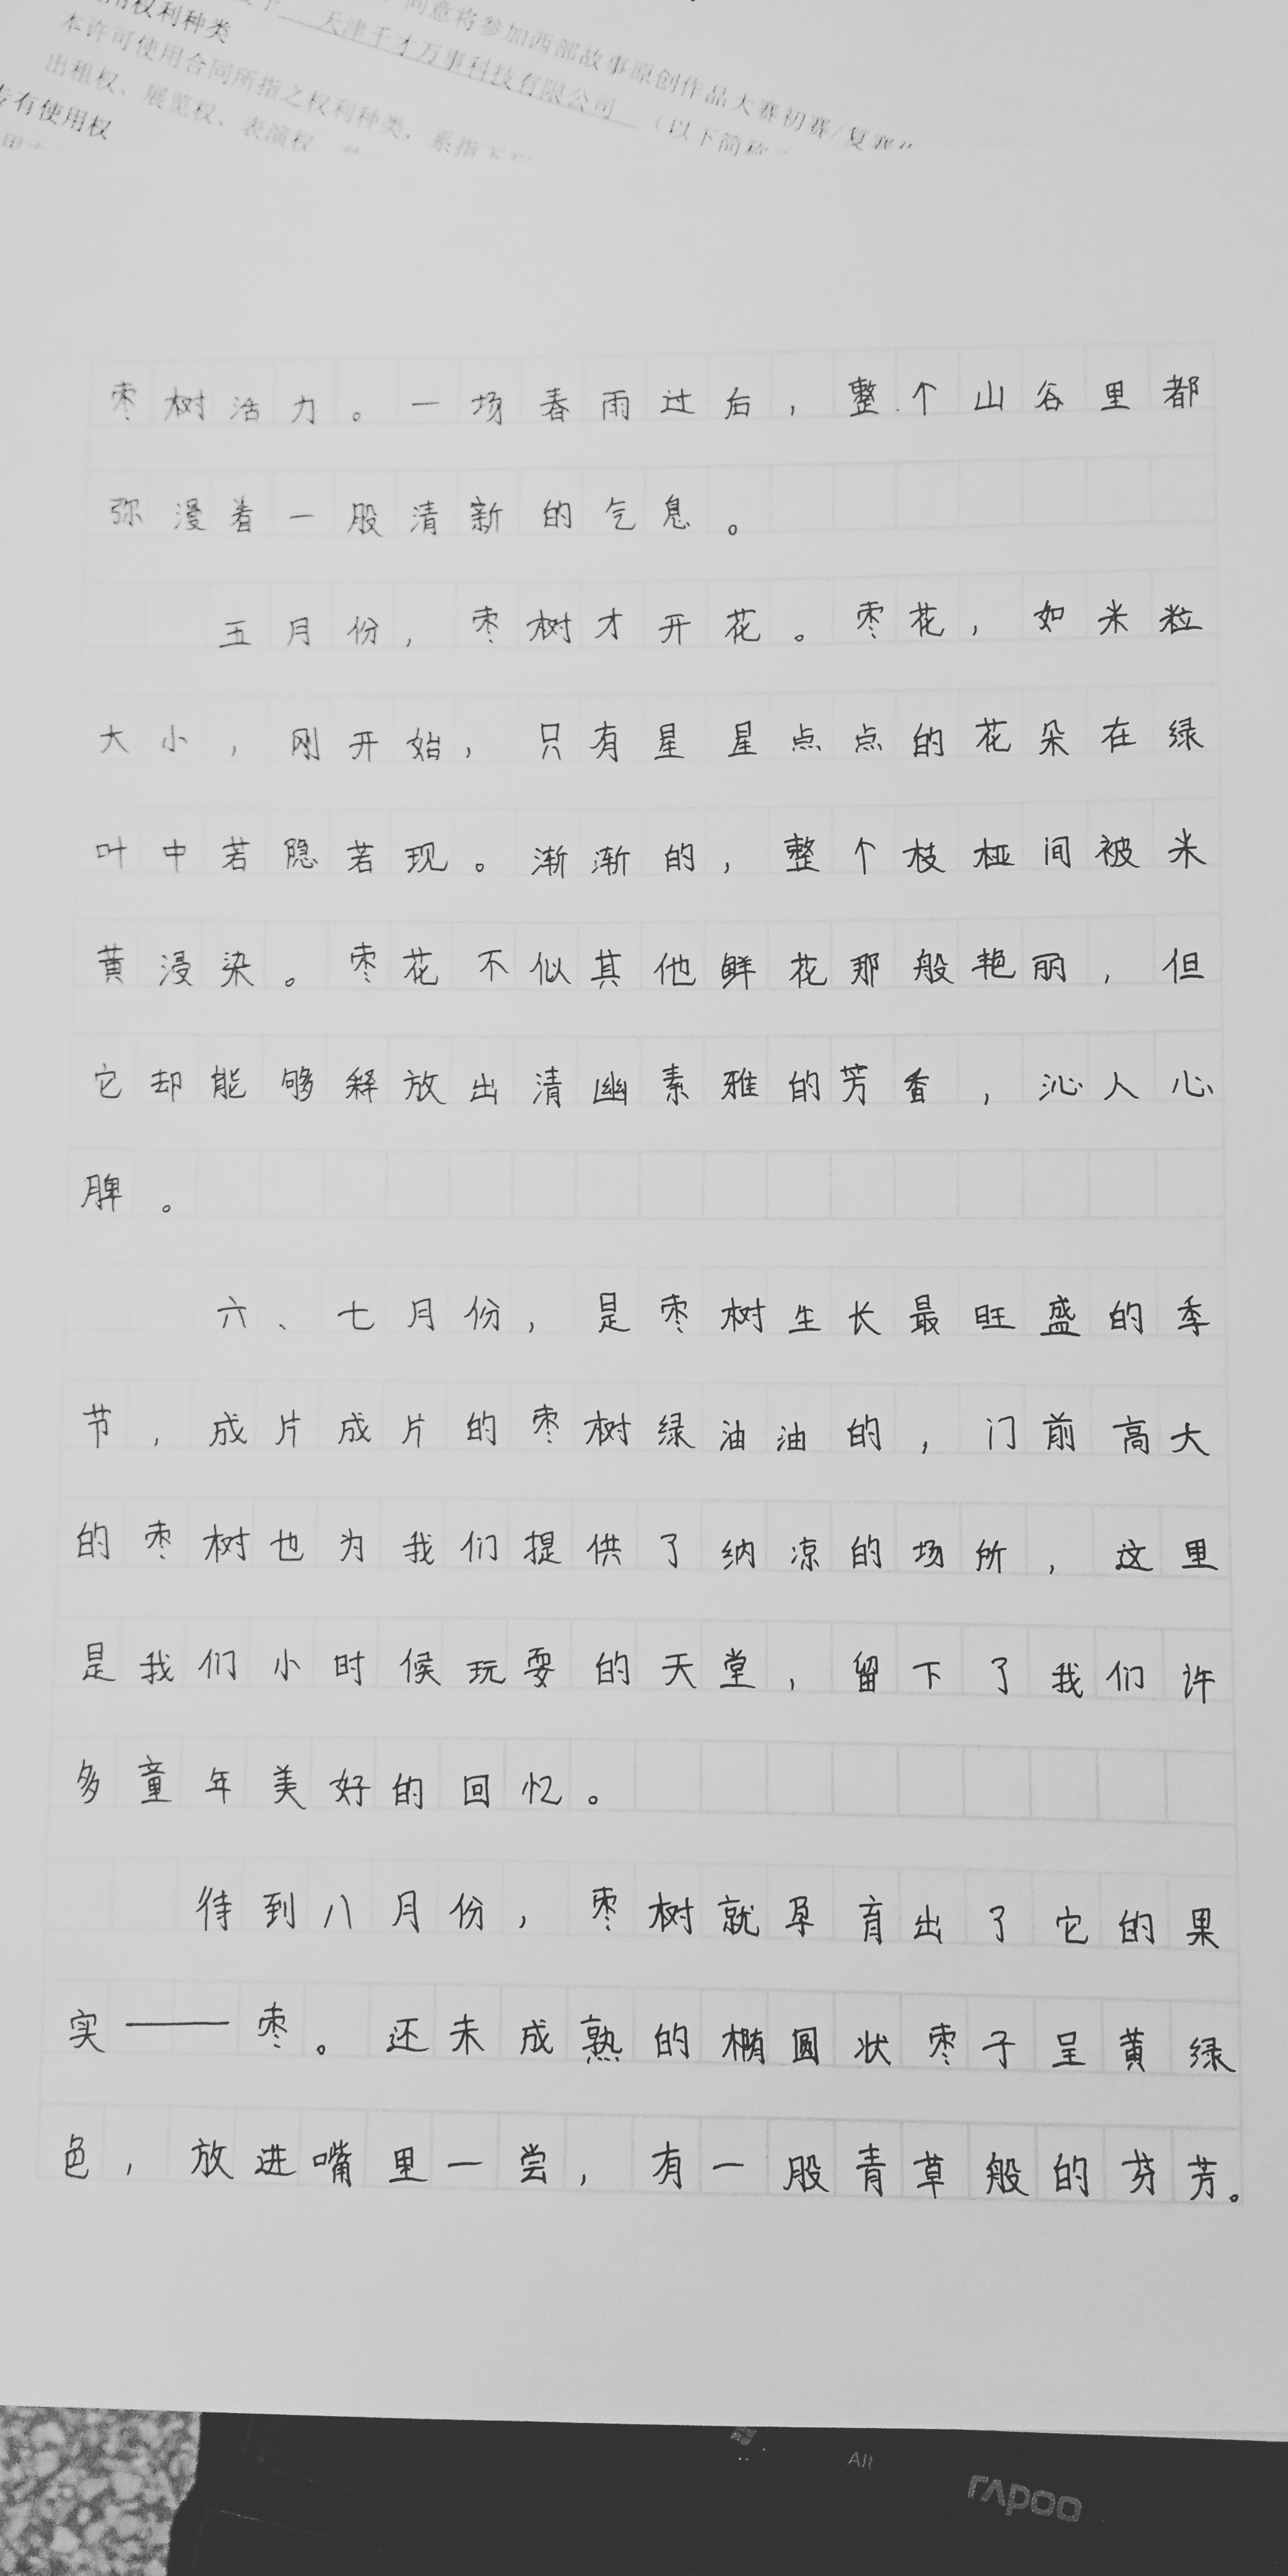 同意将参加西部故事原创作品大赛初赛/复赛“
天津千才万事科技有限公司 （以下简称
用权利种类
本许可使用合同所指之权利种类，系指下
出租权、展览权、表演权、
专有使用权
枣树活力。一场春雨过后，整个山谷里都
弥漫着一股清新的气息。
五月份，枣树才开花。枣花，如米粒
大小，刚开始，只有星星点点的花朵在绿
叶中若隐若现。渐渐的，整个枝桠间被米
黄浸染。枣花不似其他鲜花那般艳丽，但
它却能够释放出清幽素雅的芳香，沁人心
脾。
六、七月份，是枣树生长最旺盛的季
节，成片成片的枣树绿油油的，门前高大
的枣树也为我们提供了纳凉的场所，这里
是我们小时候玩耍的天堂，留下了我们许
多童年美好的回忆。
待到八月份，枣树就孕育出了它的果
实——枣。还未成熟的椭圆状枣子呈黄绿
色，放进嘴里一尝，有一股青草般的芬芳。
Alt
rapoo